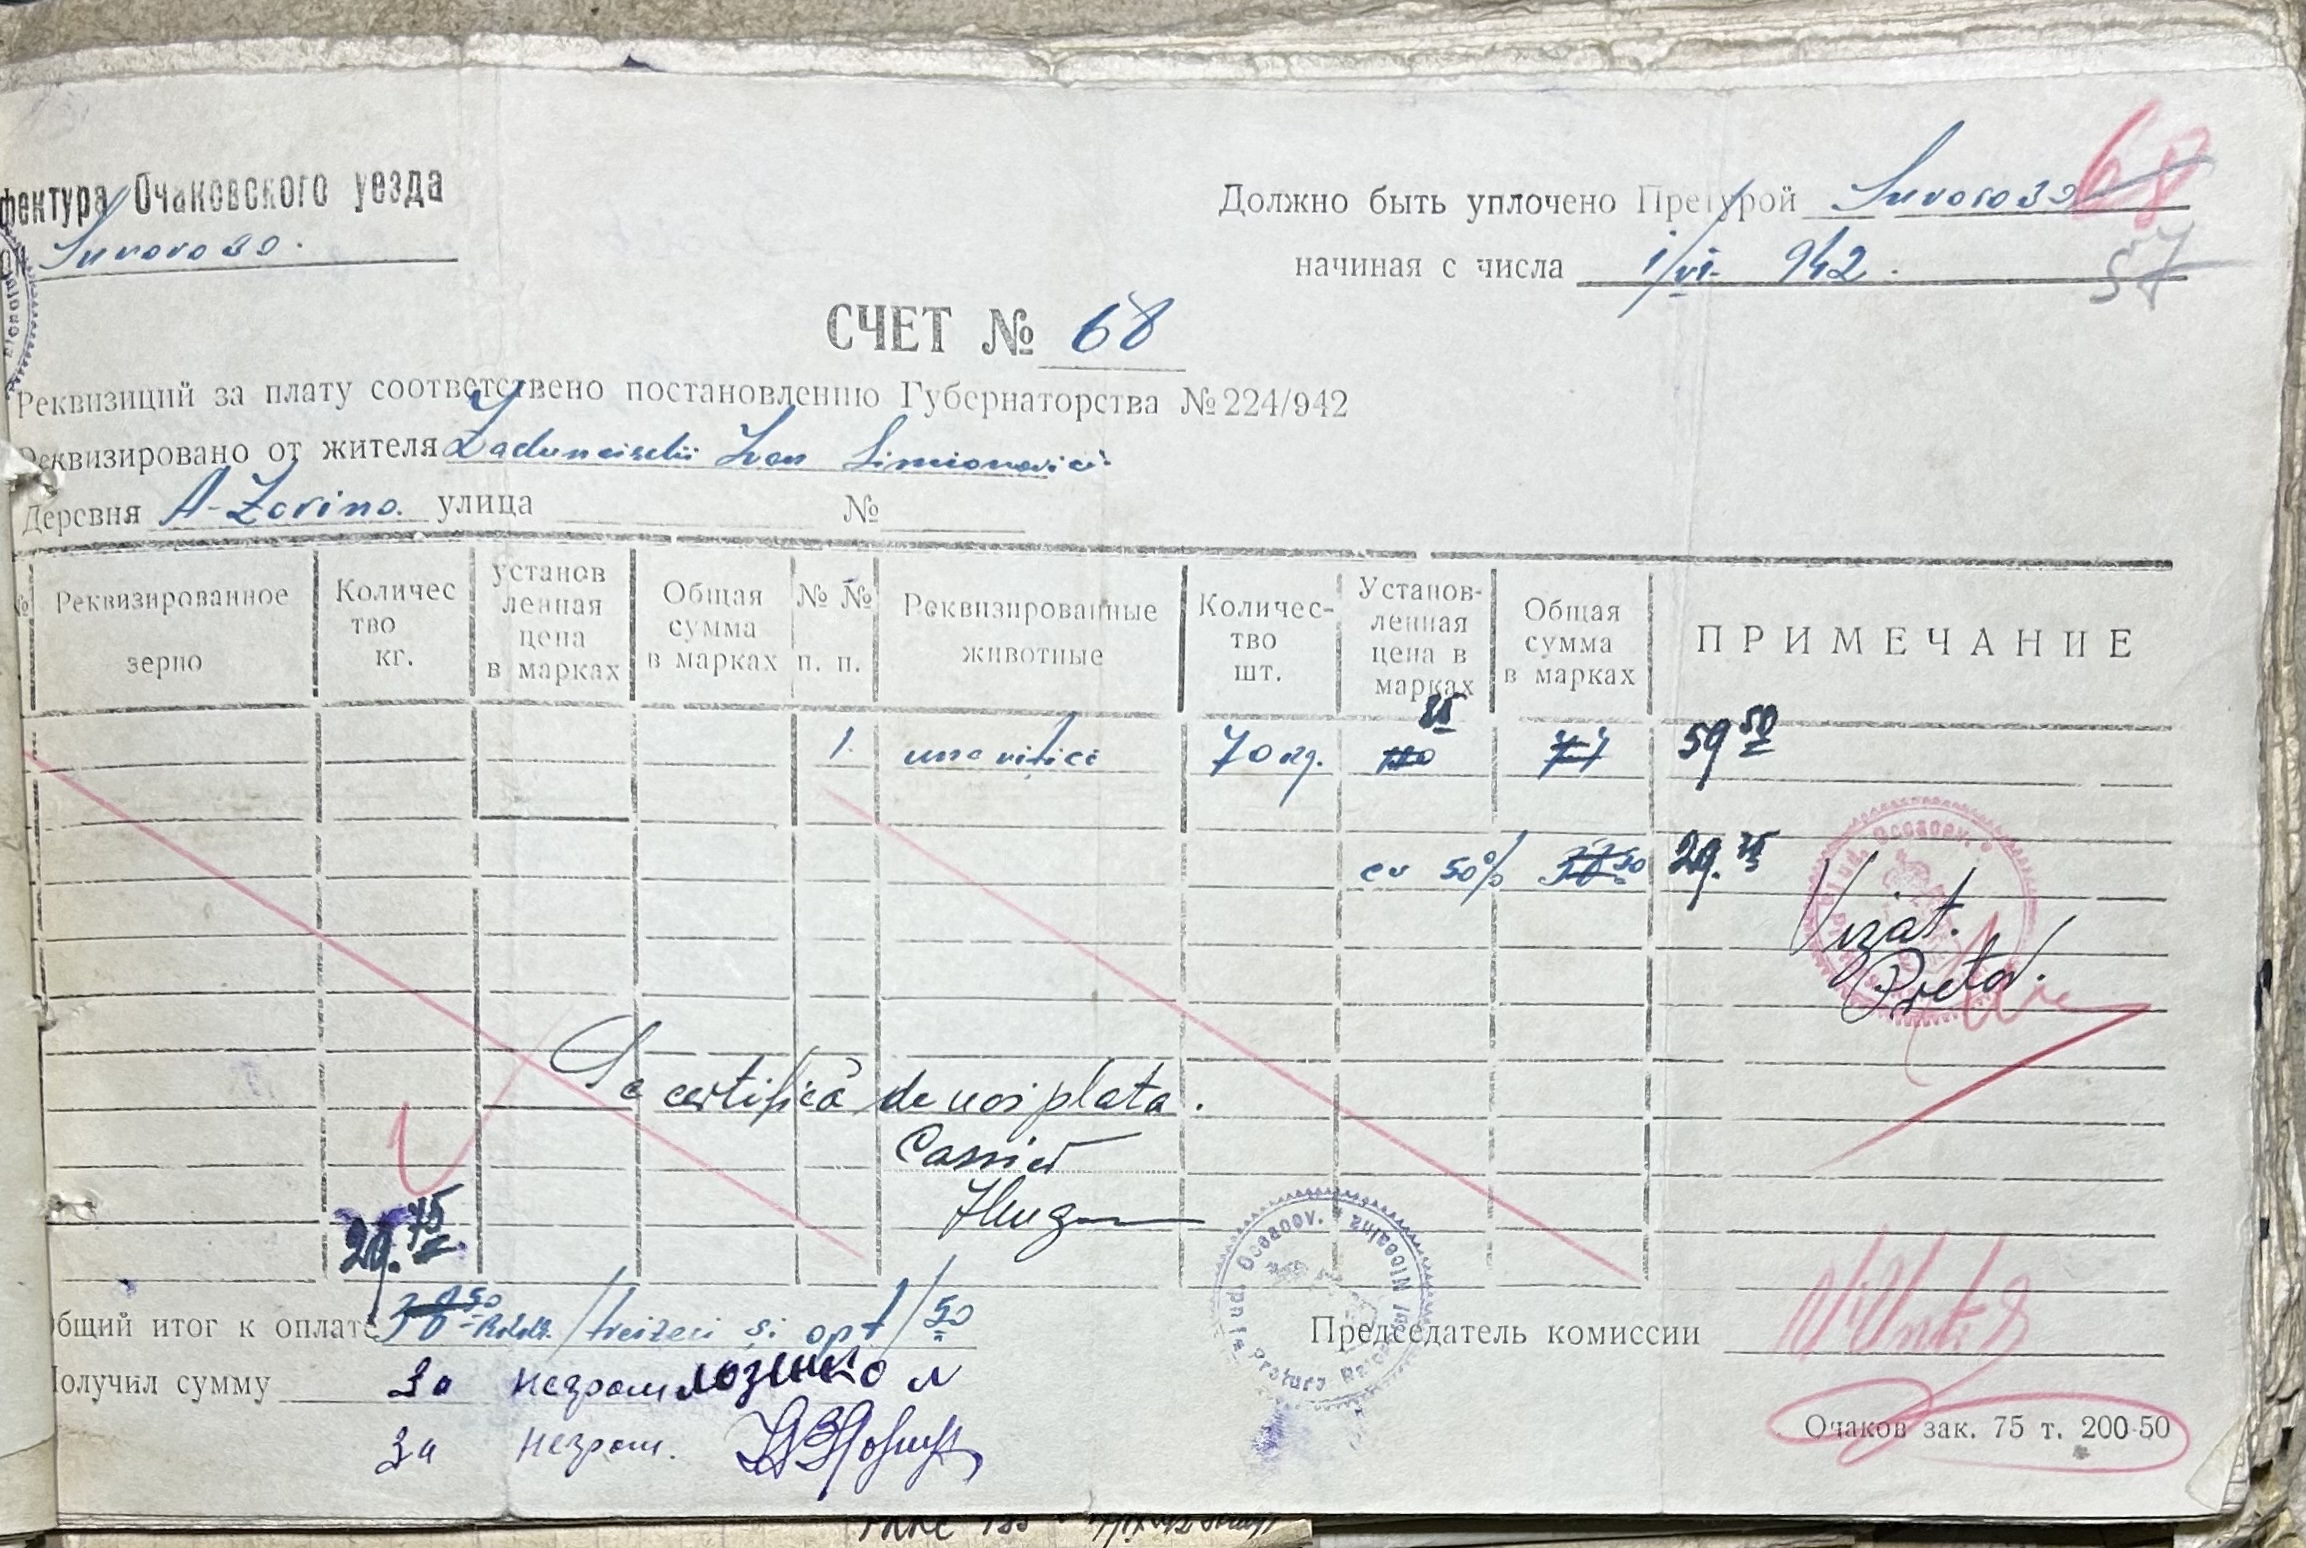 фектура Очаковского уезда
Suvorovo.
Должно быть уплочено Претурой Suvorovo
68
начиная с числа 1/VI- 942.
57
СЧЕТ № 68
Реквизиций за плату соответствено постановлению Губернаторства № 224/942
Реквизировано от жителя Zadunaischii Ivan Simionovici
Деревня A-Zorino. улица №
№ Реквизированное зерно Количес тво кг. установ ленная цена в марках Общая сумма в марках № № п. п. Реквизированные животные Количес- тво шт. Установ- ленная цена в марках Общая сумма в марках ПРИМЕЧАНИЕ
85
1. una vițică 70 kg. 110 77 59 50
cu 50% 38 50 29. 75
Jud. Oceacov.
Vizat.
Pretor.
Se certifică de noi plata.
Casier
29. 75
Jud. Oceacov.
Общий итог к оплате 38 50 /treizeci și opt/ 50
Председатель комиссии
Получил сумму За неграм Лозенко
За неграм.
Очаков зак. 75 т. 200-50